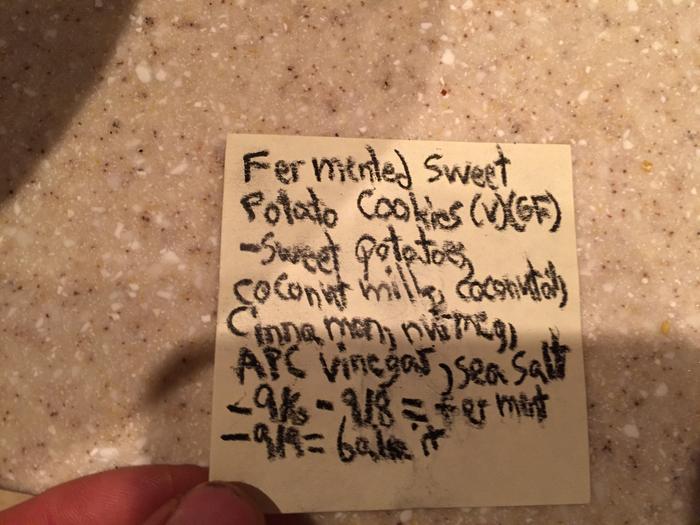 Fermented Sweet
Potato Cookies (V)(GF)
-Sweet potatoes,
coconut milk, coconutoil,
Cinnamon, nutmeg,
APC vinegar, sea salt
-9/6 - 9/8 = ferment
-9/9 = bake it